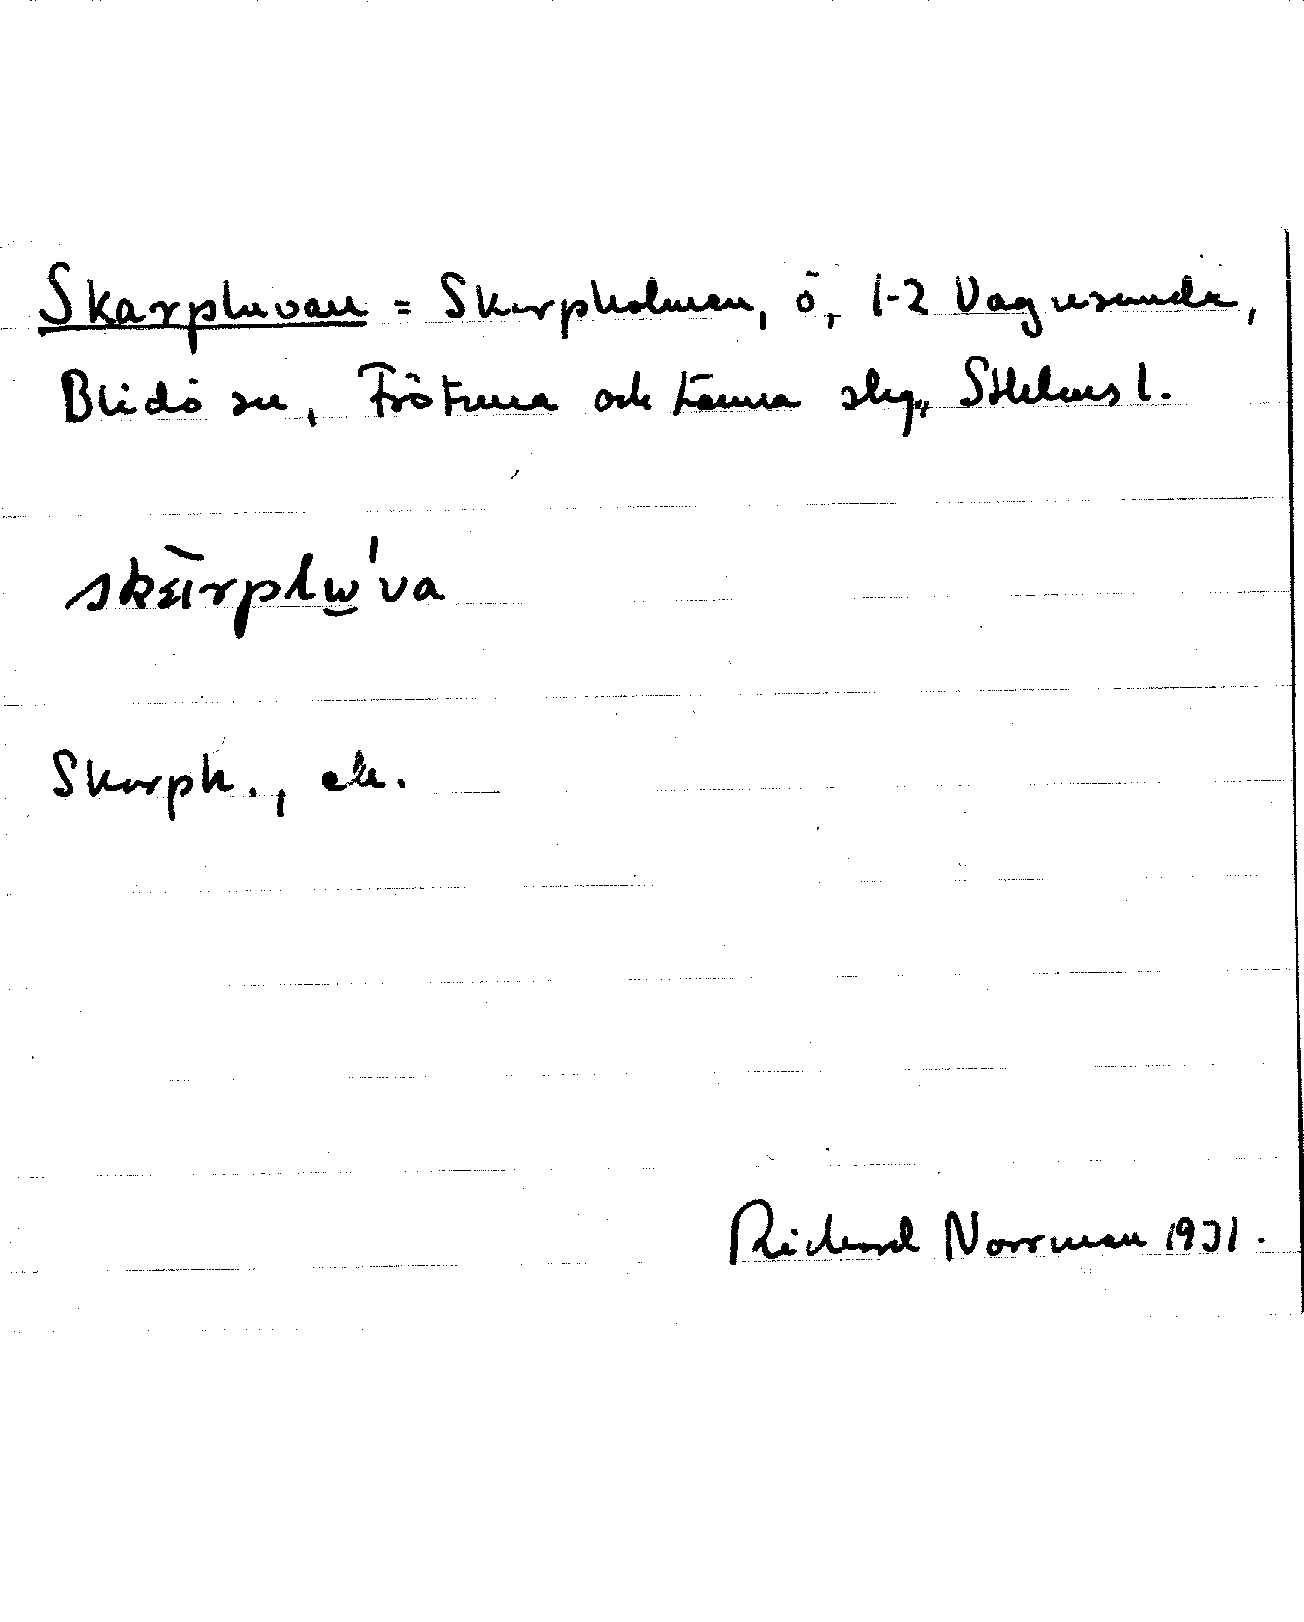 Skarpluvan = Skarpholmen, ö, 1-2 Vagnsunda,
Blidö sn, Frötuna och Länna skg., Sthlms l.
skɑ̀rplɯ'va
Skarph., ek.
Richard Norrman 1931.